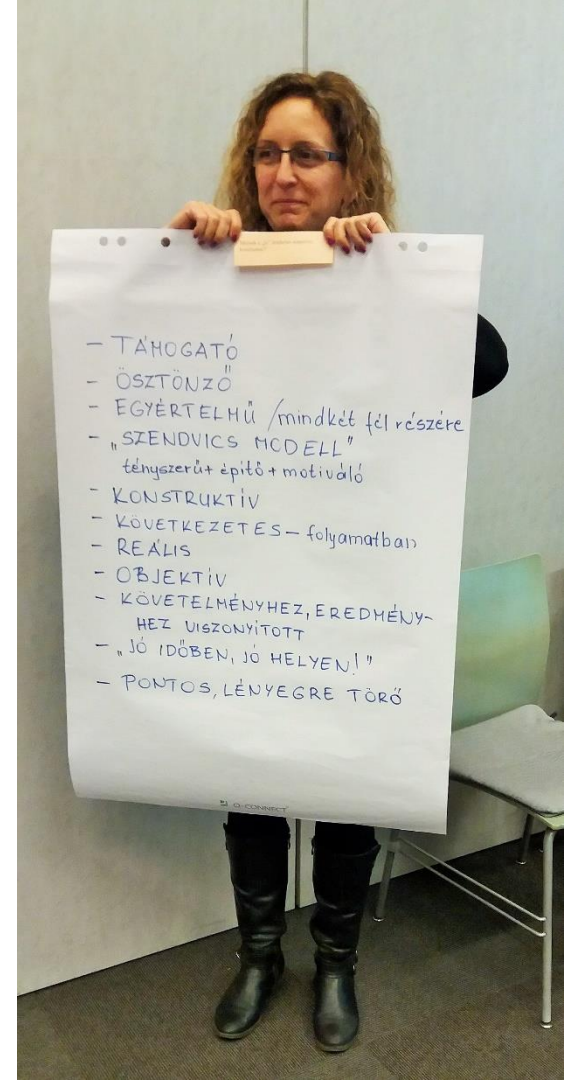 – TÁMOGATÓ
– ÖSZTÖNZŐ
– EGYÉRTELMŰ /mindkét fél részére
– „SZENDVICS MODELL"
tényszerű + építő + motiváló
– KONSTRUKTÍV
– KÖVETKEZETES – folyamatban
– REÁLIS
– OBJEKTÍV
– KÖVETELMÉNYHEZ, EREDMÉNY-
HEZ VISZONYÍTOTT
– „JÓ IDŐBEN, JÓ HELYEN!"
– PONTOS, LÉNYEGRE TÖRŐ
Q-CONNECT